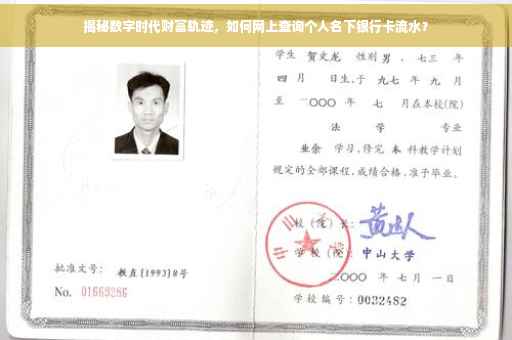 揭秘数字时代财富轨迹，如何网上查询个人名下银行卡流水？
学生 贺文龙 性别 男 ，七三 年
四 月 日生，于 九七 年 九 月
至 二〇〇〇 年 七 月在本校(院)
法 学 专业
业余 学习，修完 本 科教学计划
规定的全部课程，成绩合格，准予毕业。
校(院)长：
学 校(院)： 中山大学
二〇〇〇 年 七 月 一 日
学校编号：0032482
批准文号： 教直[1993]8号
No. 01669286